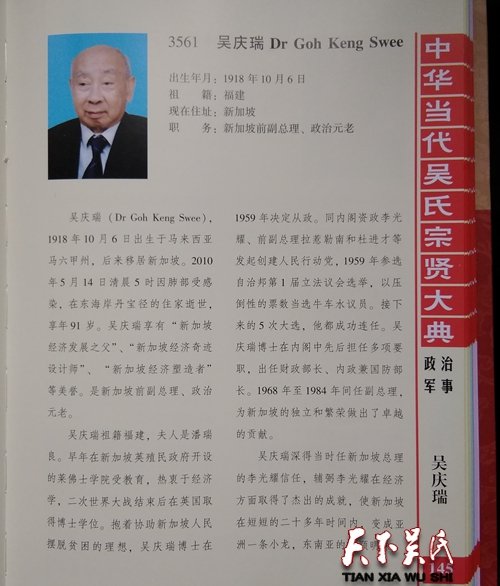 3561 吴庆瑞 Dr Goh Keng Swee
出生年月：1918 年 10 月 6 日
祖 籍：福建
现在住址：新加坡
职 务：新加坡前副总理、政治元老
吴庆瑞（Dr Goh Keng Swee），
1918 年 10 月 6 日出生于马来西亚
马六甲州，后来移居新加坡。2010
年 5 月 14 日清晨 5 时因肺部受感
染，在东海岸丹宝径的住家逝世，
享年 91 岁。吴庆瑞享有“新加坡
经济发展之父”、“新加坡经济奇迹
设计师”、 “新加坡经济塑造者”
等美誉。是新加坡前副总理、政治
元老。
吴庆瑞祖籍福建，夫人是潘瑞
良。早年在新加坡英殖民政府开设
的莱佛士学院受教育，热衷于经济
学，二次世界大战结束后在英国取
得博士学位。抱着协助新加坡人民
摆脱贫困的理想，吴庆瑞博士在
1959 年决定从政。同内阁资政李光
耀、前副总理拉惹勒南和杜进才等
发起创建人民行动党，1959 年参选
自治邦第 1 届立法议会选举，以压
倒性的票数当选牛车水议员。接下
来的 5 次大选，他都成功连任。吴
庆瑞博士在内阁中先后担任多项要
职，出任财政部长、内政兼国防部
长。1968 年至 1984 年间任副总理，
为新加坡的独立和繁荣做出了卓越
的贡献。
吴庆瑞深得当时任新加坡总理
的李光耀信任，辅弼李光耀在经济
方面取得了杰出的成就，使新加坡
在短短的二十多年时间内，变成亚
洲一条小龙，东南亚的
中华当代吴氏宗贤大典
政治
军事
吴庆瑞
145
天下吴氏
TIAN XIA WU SHI